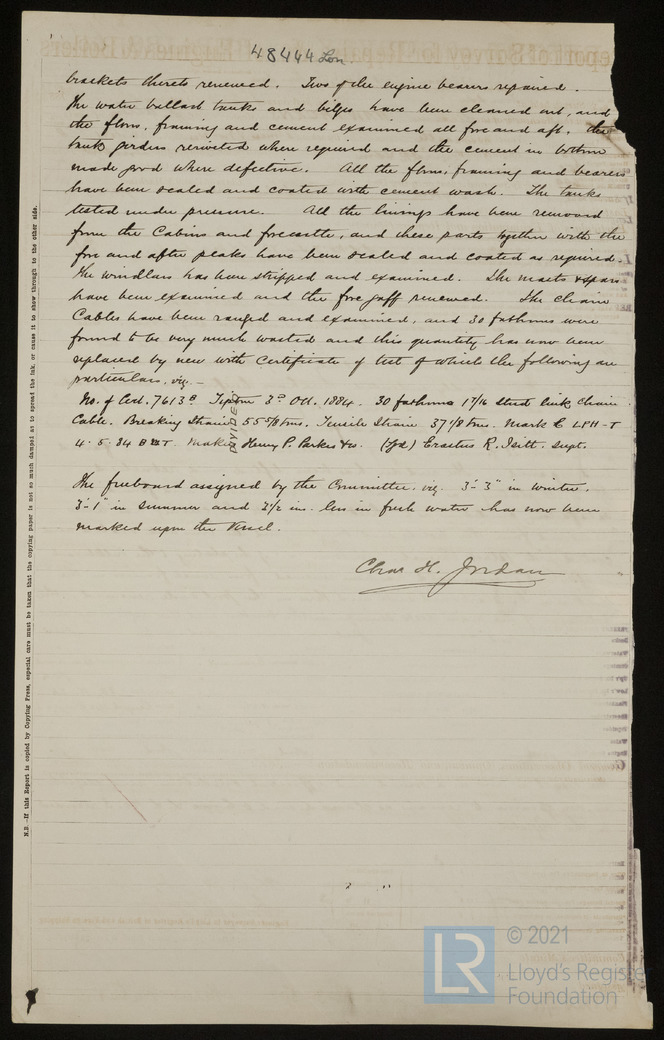 48444 Lon
brackets thereto renewed. Two of the engine bearers repaired.
The water ballast tanks and bilges have been cleaned out, and
the floors, framing and cement examined all fore and aft. The
tank girders reriveted where required and the cement in bottom
made good where defective. All the floors, framing and bearers
have been scaled and coated with cement wash. The tanks
tested under pressure. All the linings have been removed
from the Cabins and forecastle, and these parts together with the
fore and after peaks have been scaled and coated as required.
The windlass has been stripped and examined. The masts & spars
have been examined and the fore gaff renewed. The chain
Cables have been ranged and examined, and 30 fathoms were
found to be very much wasted and this quantity has now been
replaced by new with Certificate of test of which the following are
particulars. viz. –
No. of Cert. 7613 B Tipton 3rd Oct. 1884. 30 fathoms 1 7/16 Stud link Chain
Cable. Breaking Strain 55 5/8 tons. Tensile Strain 37 1/8 tons. Mark LPH-T
4.5.84 Maker Henry P. Parkes & Co. (Sgd) Erastus R. Isitt. Supt.
The freeboard assigned by the Committee. viz. 3'-3" in winter.
3'-1" in Summer and 2 1/2 ins. less in fresh water has now been
marked upon the Vessel.
Chas H. Jordan
N.B.—If this Report is copied by Copying Press, especial care must be taken that the copying paper is not so much damped as to spread the ink, or cause it to show through to the other side.
© 2021
LR
Lloyd's Register
Foundation